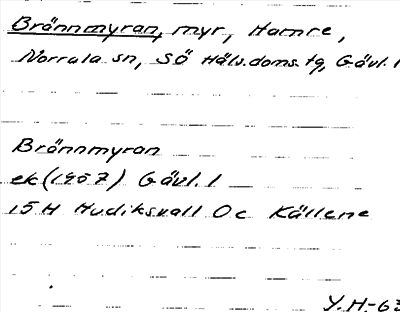 Brännmyran, myr, Hamre,
Norrala sn, SÖ Häls.doms.tg, Gävl. l
Brännmyran
ek (1957) Gävl. l
15H Hudiksvall Oc Källene
Y.H-63